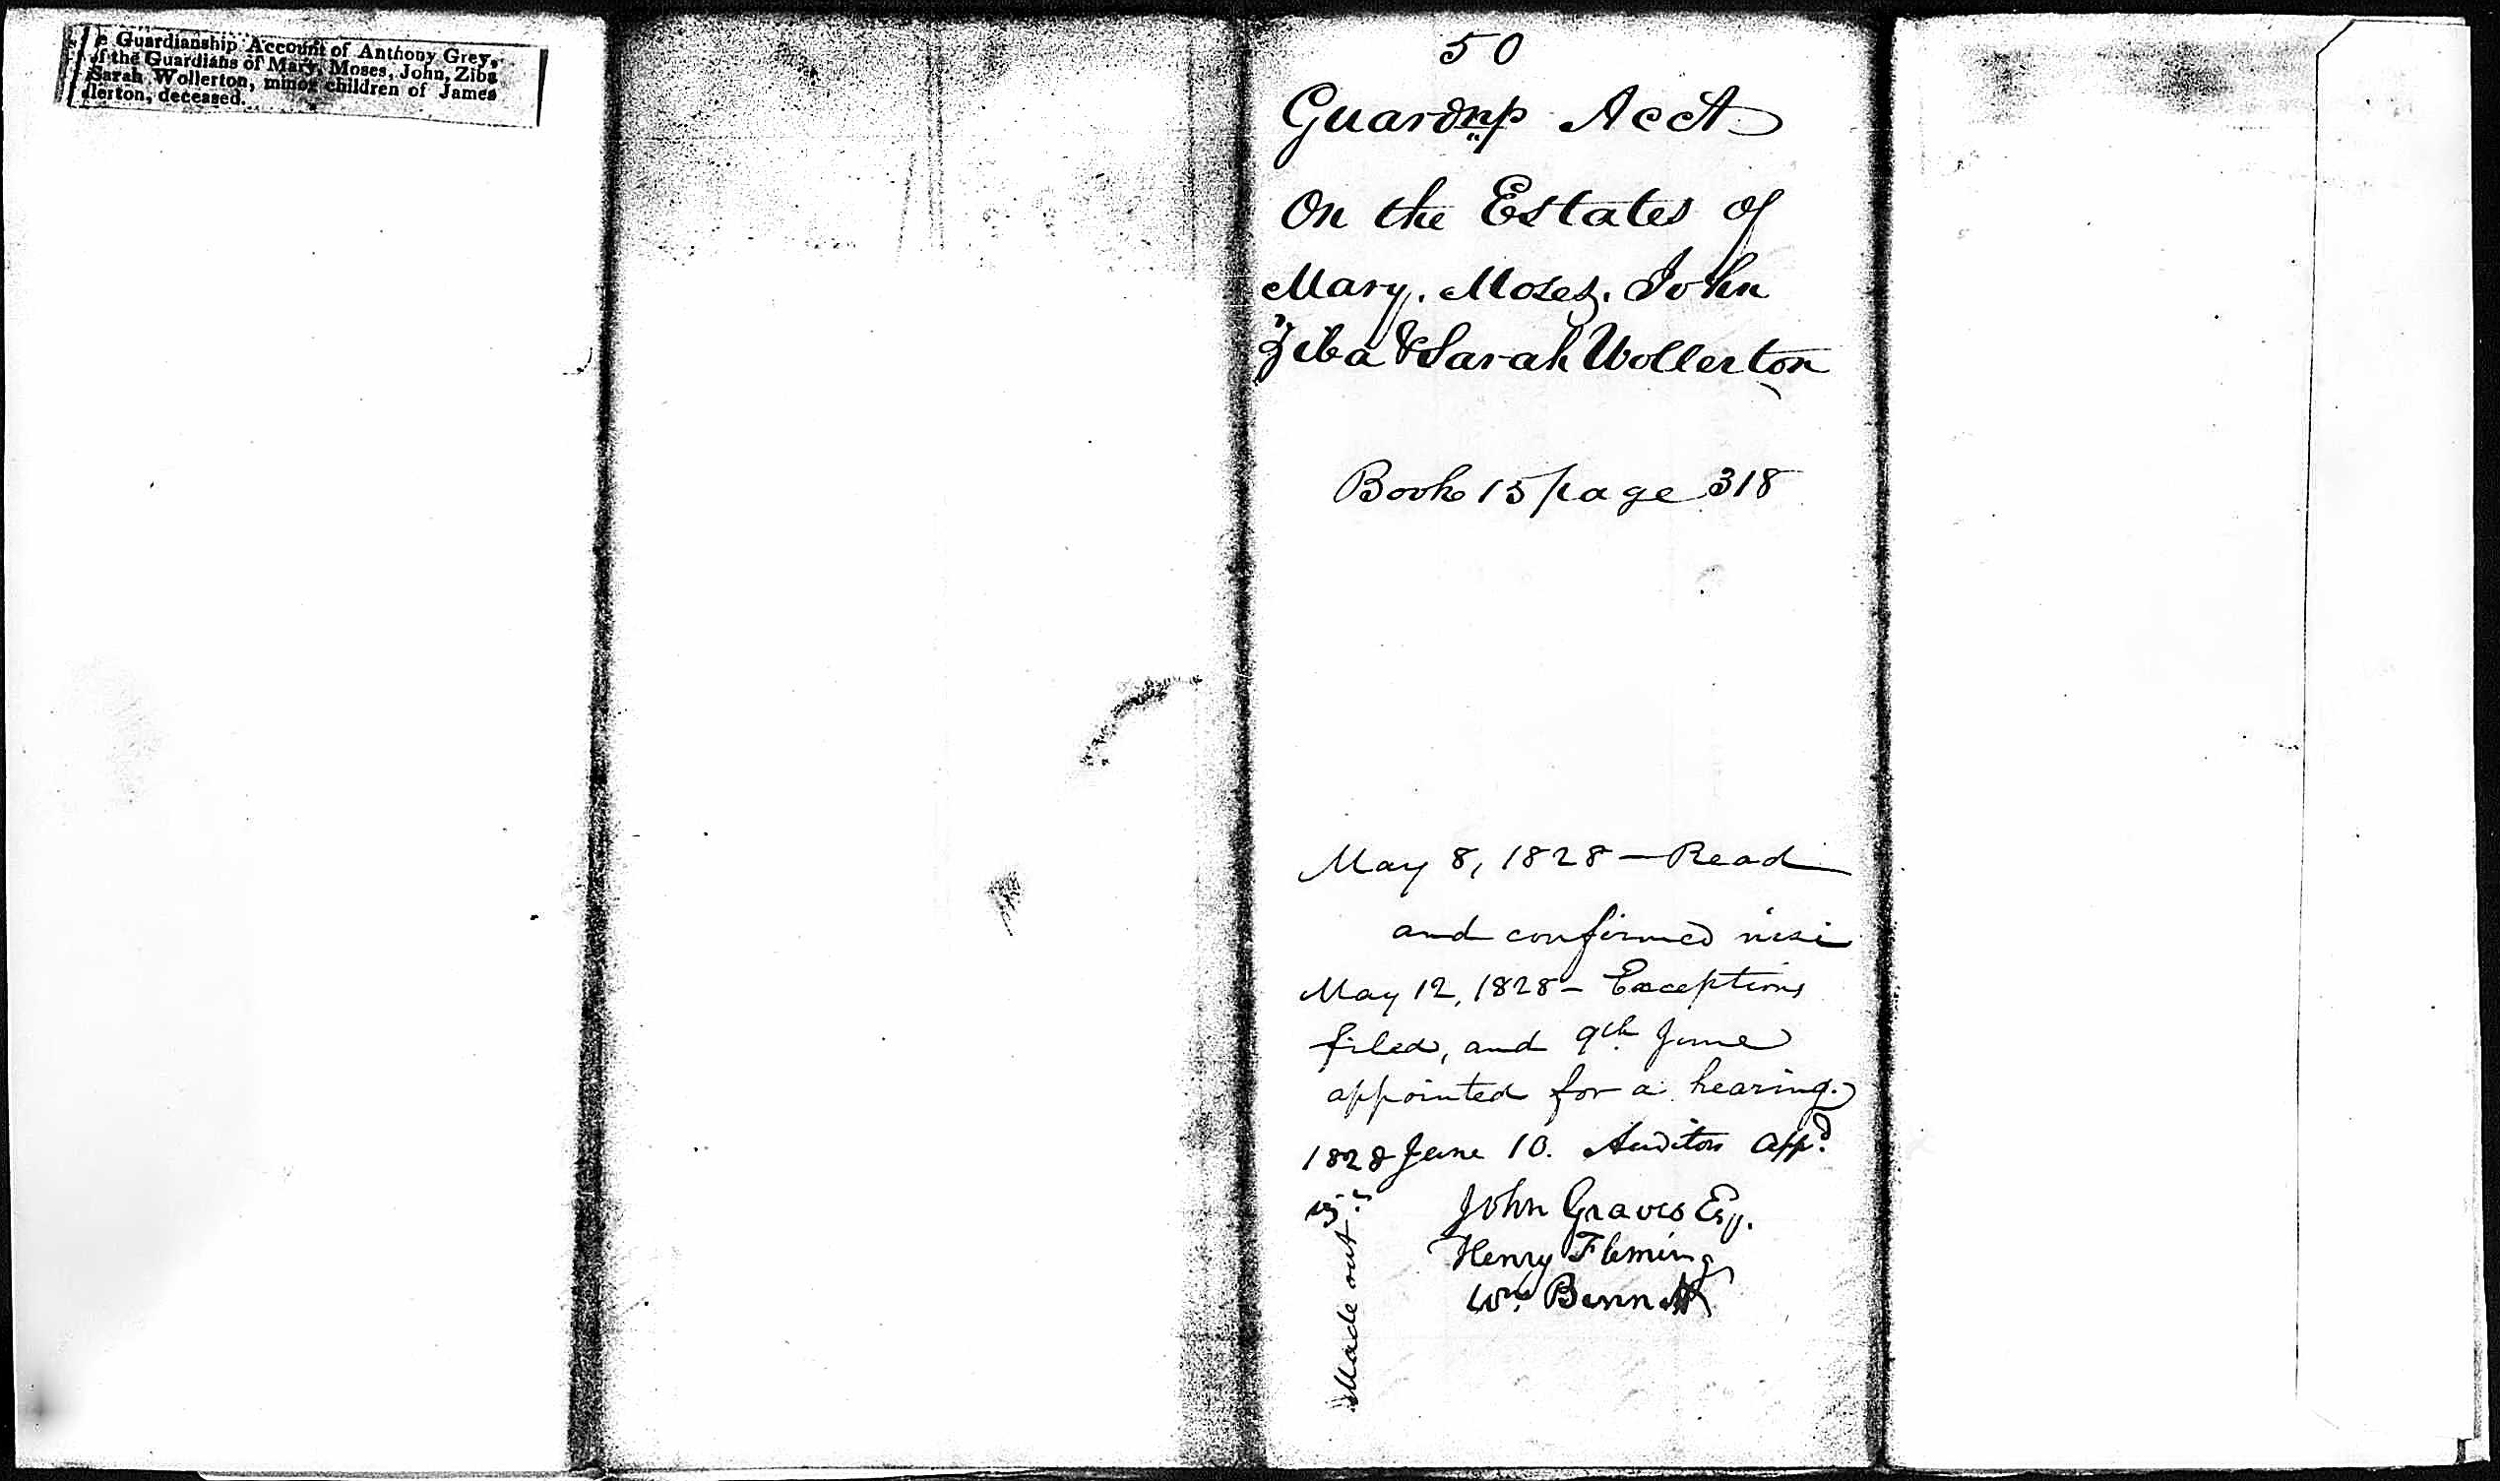 e Guardianship Account of Anthony Grey,
of the Guardians of Mary, Moses, John, Ziba
Sarah Wollerton, minor children of James
llerton, deceased.
50
Guardnp Acct
On the Estates of
Mary. Moses. John
Ziba & Sarah Wollerton
Book 15 page 318
May 8, 1828 — Read
and confirmed nisi
May 12, 1828 – Exceptions
filed, and 9th June
appointed for a hearing.
1828 June 10. Auditors appd.
John Graves Esq.
Henry Fleming
Wm. Bennett
Made out